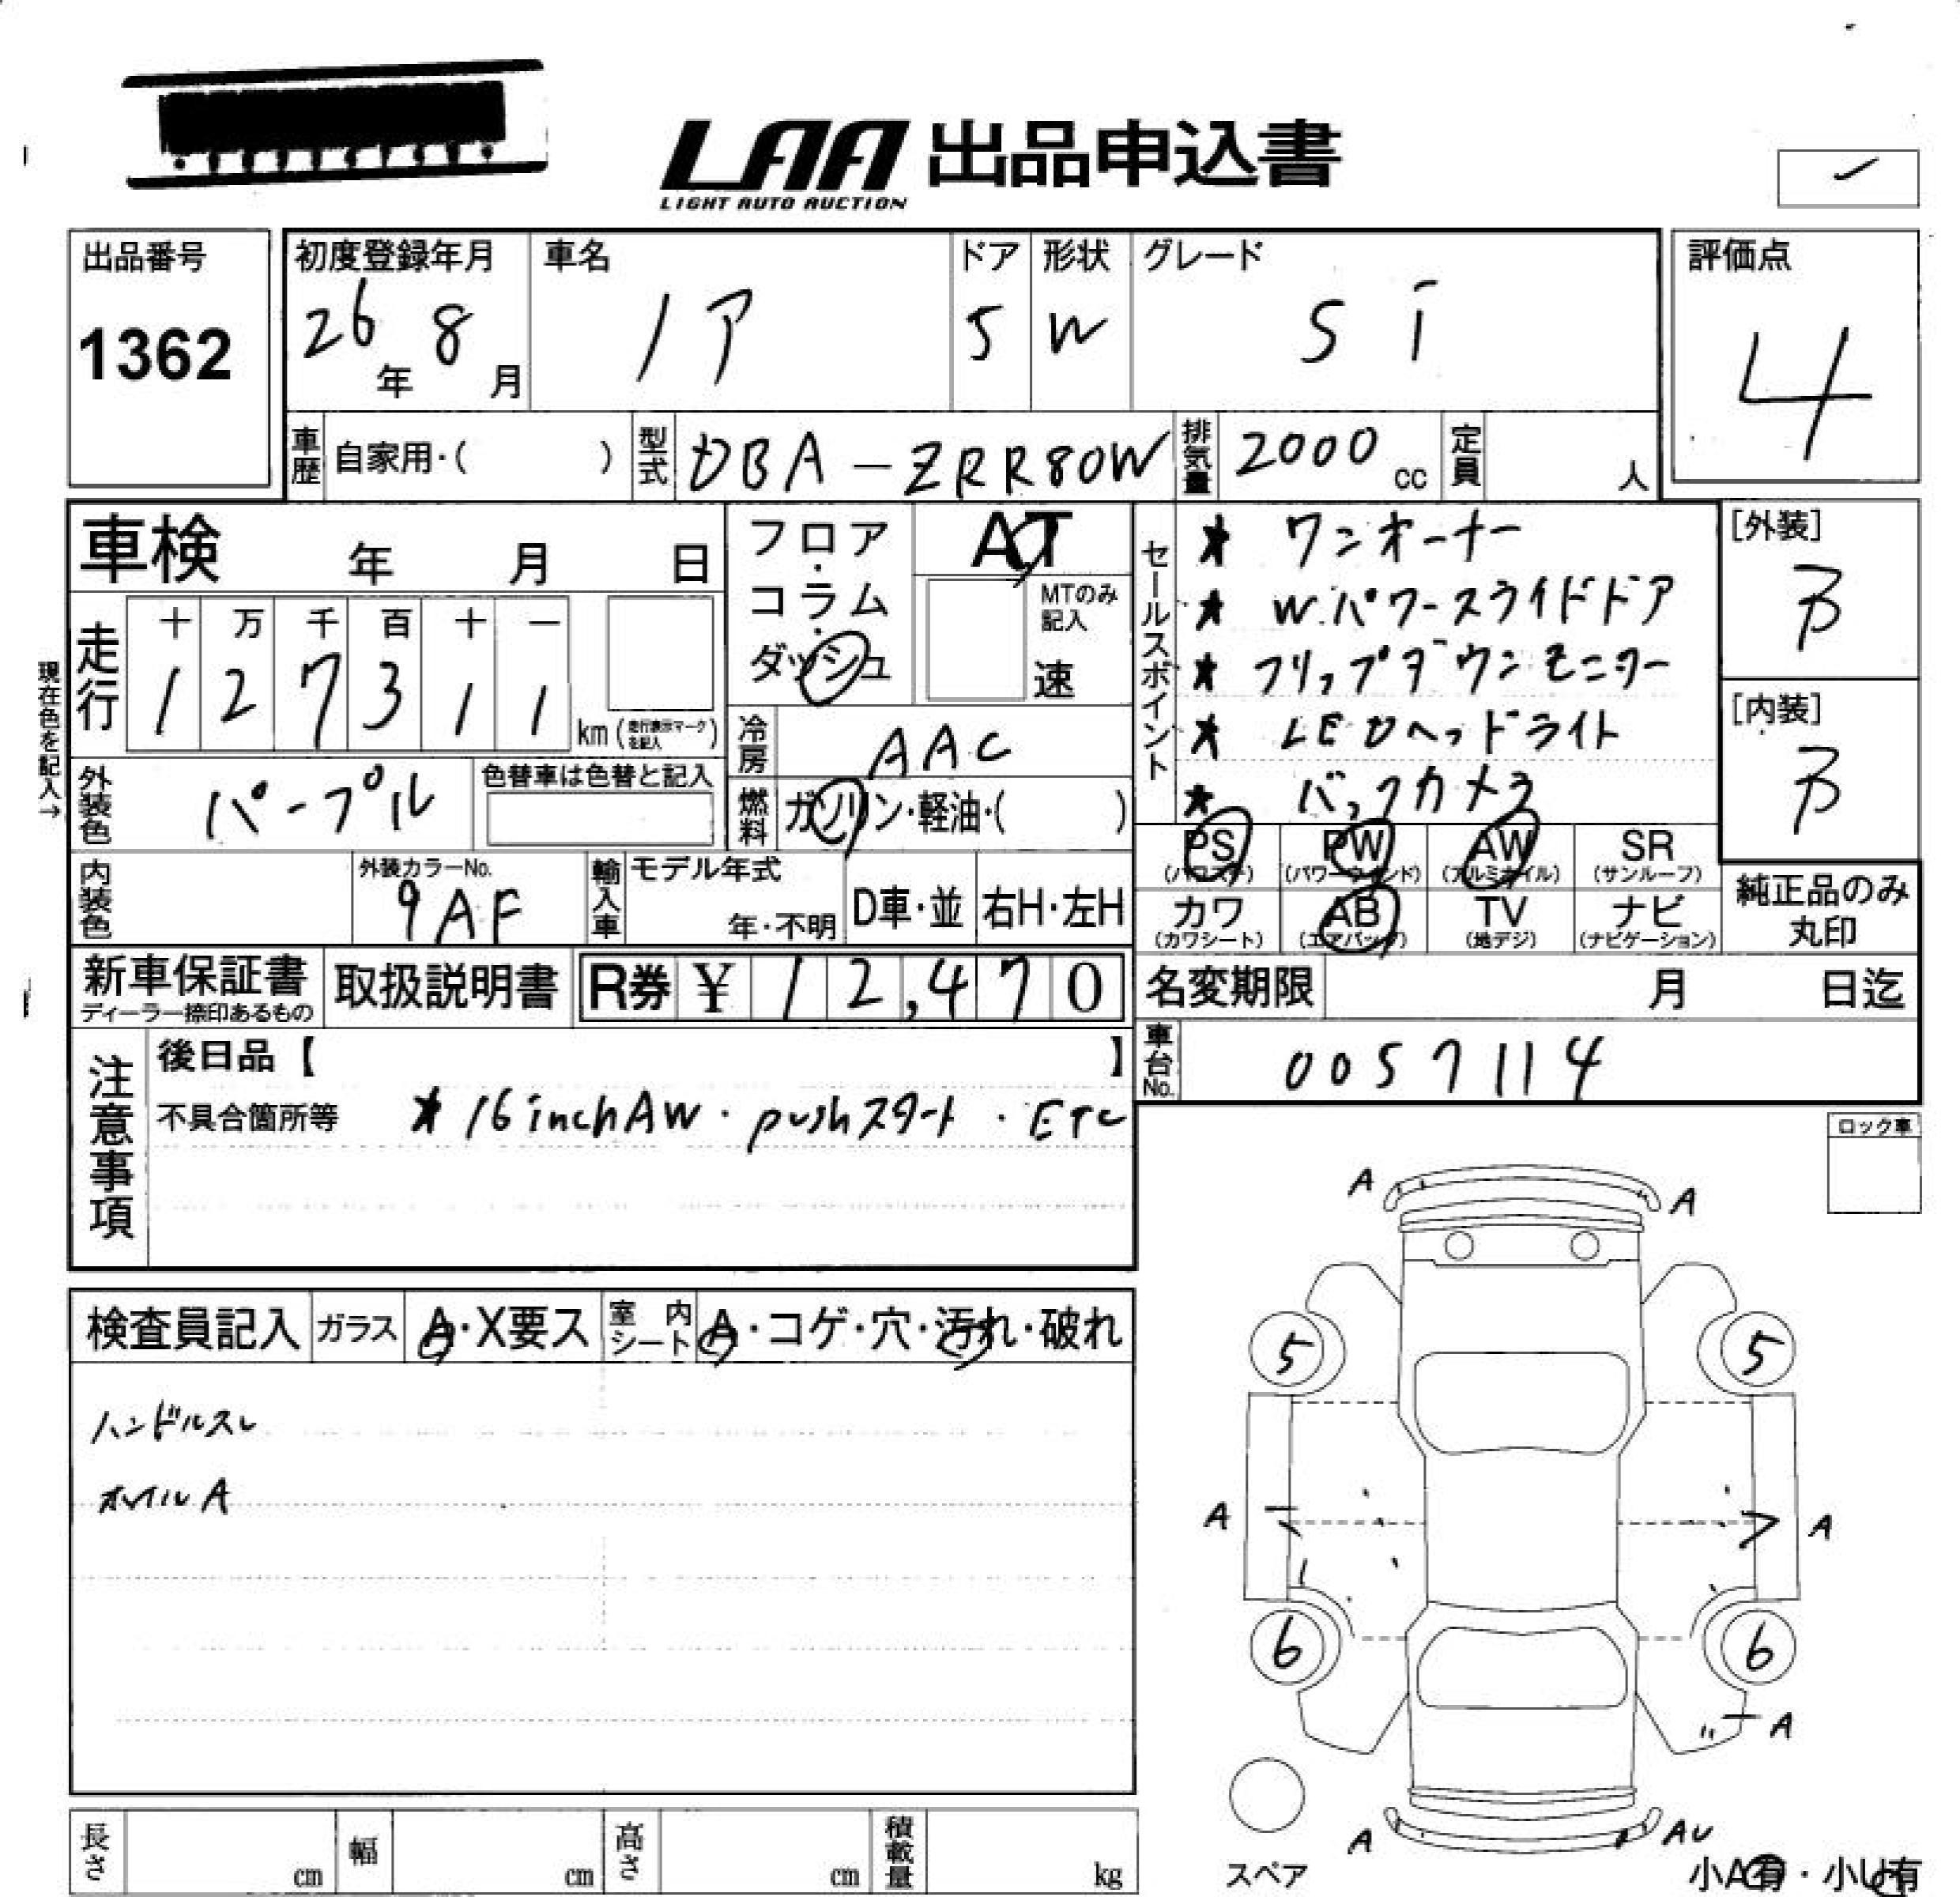 LAA 出品申込書
LIGHT AUTO AUCTION
出品番号
1362
初度登録年月
26年 8月
車名
ノア
ドア
5
形状
W
グレード
Si
評価点
4
車歴 自家用・( )
型式 DBA-ZRR80W
排気量 2000 cc
定員 人
車検 年 月 日
走行
十 万 千 百 十 一
1 2 7 3 1 1 km (走行表示マークを記入)
現在色を記入→
外装色 パープル
色替車は色替と記入
内装色
外装カラーNo.
9AF
フロア・コラム・ダッシュ
AT
MTのみ記入
速
冷房 AAC
燃料 ガソリン・軽油・( )
輸入車
モデル年式
年・不明
D車・並
右H・左H
セールスポイント
★ ワンオーナー
★ W.パワースライドドア
★ フリップダウンモニター
★ LEDヘッドライト
★ バックカメラ
[外装]
B
[内装]
B
PS (パワステ)
PW (パワーウインド)
AW (アルミホイル)
SR (サンルーフ)
カワ (カワシート)
AB (エアバック)
TV (地デジ)
ナビ (ナビゲーション)
純正品のみ
丸印
新車保証書
ディーラー捺印あるもの
取扱説明書
R券 ¥ 12,470
名変期限 月 日迄
車台No. 0057114
注意事項
後日品【 】
不具合箇所等 ★16inchAW・pushスタート・ETC
ロック車
検査員記入
ガラス A・X要ス
室内シート A・コゲ・穴・汚れ・破れ
ハンドルスレ
ホイルA
A
A
5
5
A
A
6
6
A
A
AU
スペア
小A有・小U有
長さ cm
幅 cm
高さ cm
積載量 kg